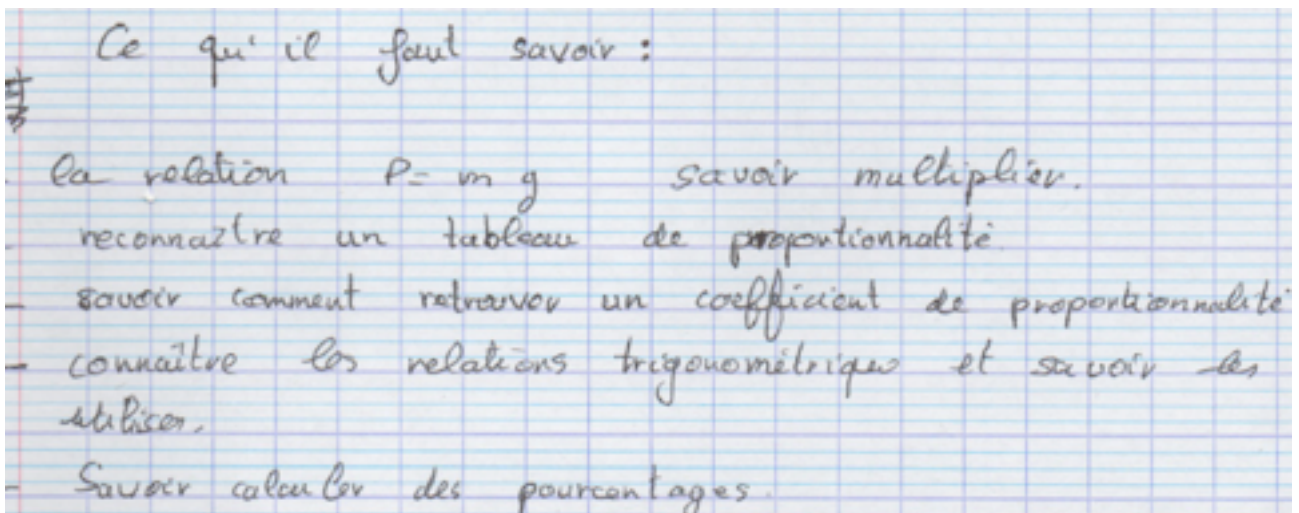 Ce qu'il faut savoir :
- la relation P = m g savoir multiplier.
- reconnaître un tableau de proportionnalité
- savoir comment retrouver un coefficient de proportionnalité
- connaître les relations trigonométriques et savoir les
utiliser.
- Savoir calculer des pourcentages.